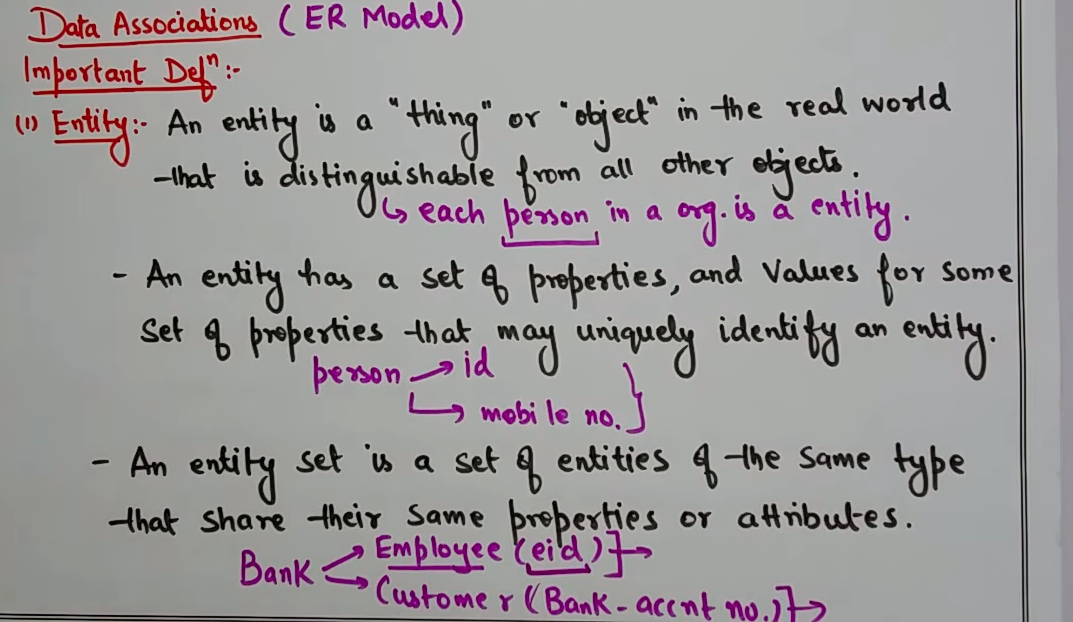 Data Associations (ER Model)
Important Defⁿ:-
(1) Entity:- An entity is a "thing" or "object" in the real world
that is distinguishable from all other objects.
↳ each person in a org. is a entity.
- An entity has a set of properties, and values for some
set of properties that may uniquely identify an entity.
person → id
↳ mobile no. }
- An entity set is a set of entities of the same type
that share their same properties or attributes.
Bank Employee (eid)
Customer (Bank-accnt no.)